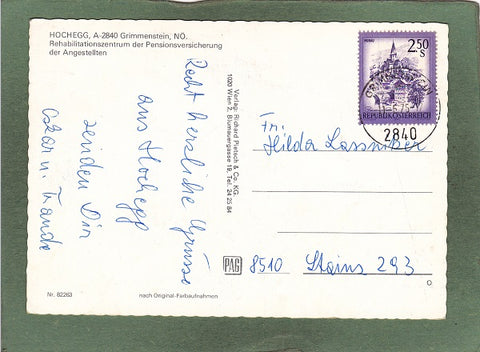 HOCHEGG, A-2840 Grimmenstein, NÖ.
Rehabilitationszentrum der Pensionsversicherung
der Angestellten
Recht herzliche Grüsse
aus Hochegg
senden Dir
Oskar u. Traude
Verlag: Richard Pietsch & Co. KG.
1020 Wien 2, Blumauergasse 19, Tel. 24 25 84
2.50
S
REPUBLIK ÖSTERREICH
2840
Fr.
Hilda Lassniker
8510 Stainz 293
PAG
Nr. 82263
nach Original-Farbaufnahmen